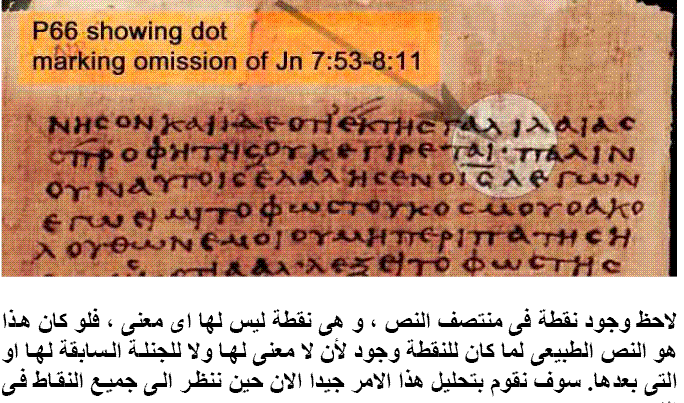 P66 showing dot
marking omission of Jn 7:53-8:11
ΝΗCΟΝΚΑΙΙΔΕΟΤΙΕΚΤΗCΓΑΛΙΛΑΙΑC
ΟΠΡΟΦΗΤΗCΟΥΚΕΓΙΡΕΤΑΙ·ΠΑΛΙΝ
ΟΥΝΑΥΤΟΙCΕΛΑΛΗCΕΝΟΙCΛΕΓΩΝ
ΕΓΩΕΙΜΙΤΟΦΩCΤΟΥΚΟCΜΟΥΟΑΚΟ
ΛΟΥΘΩΝΕΜΟΙΟΥΜΗΠΕΡΙΠΑΤΗCΗ
ΤΙΑΑΛ·ΛΕΞΕΙΤΟΦΩCΤΗC
لاحظ وجود نقطة فى منتصف النص ، و هى نقطة ليس لها اى معنى ، فلو كان هذا
هو النص الطبيعى لما كان للنقطة وجود لأن لا معنى لها ولا للجنلة السابقة لها او
التى بعدها. سوف نقوم بتحليل هذا الامر جيدا الان حين ننظر الى جميع النقاط فى